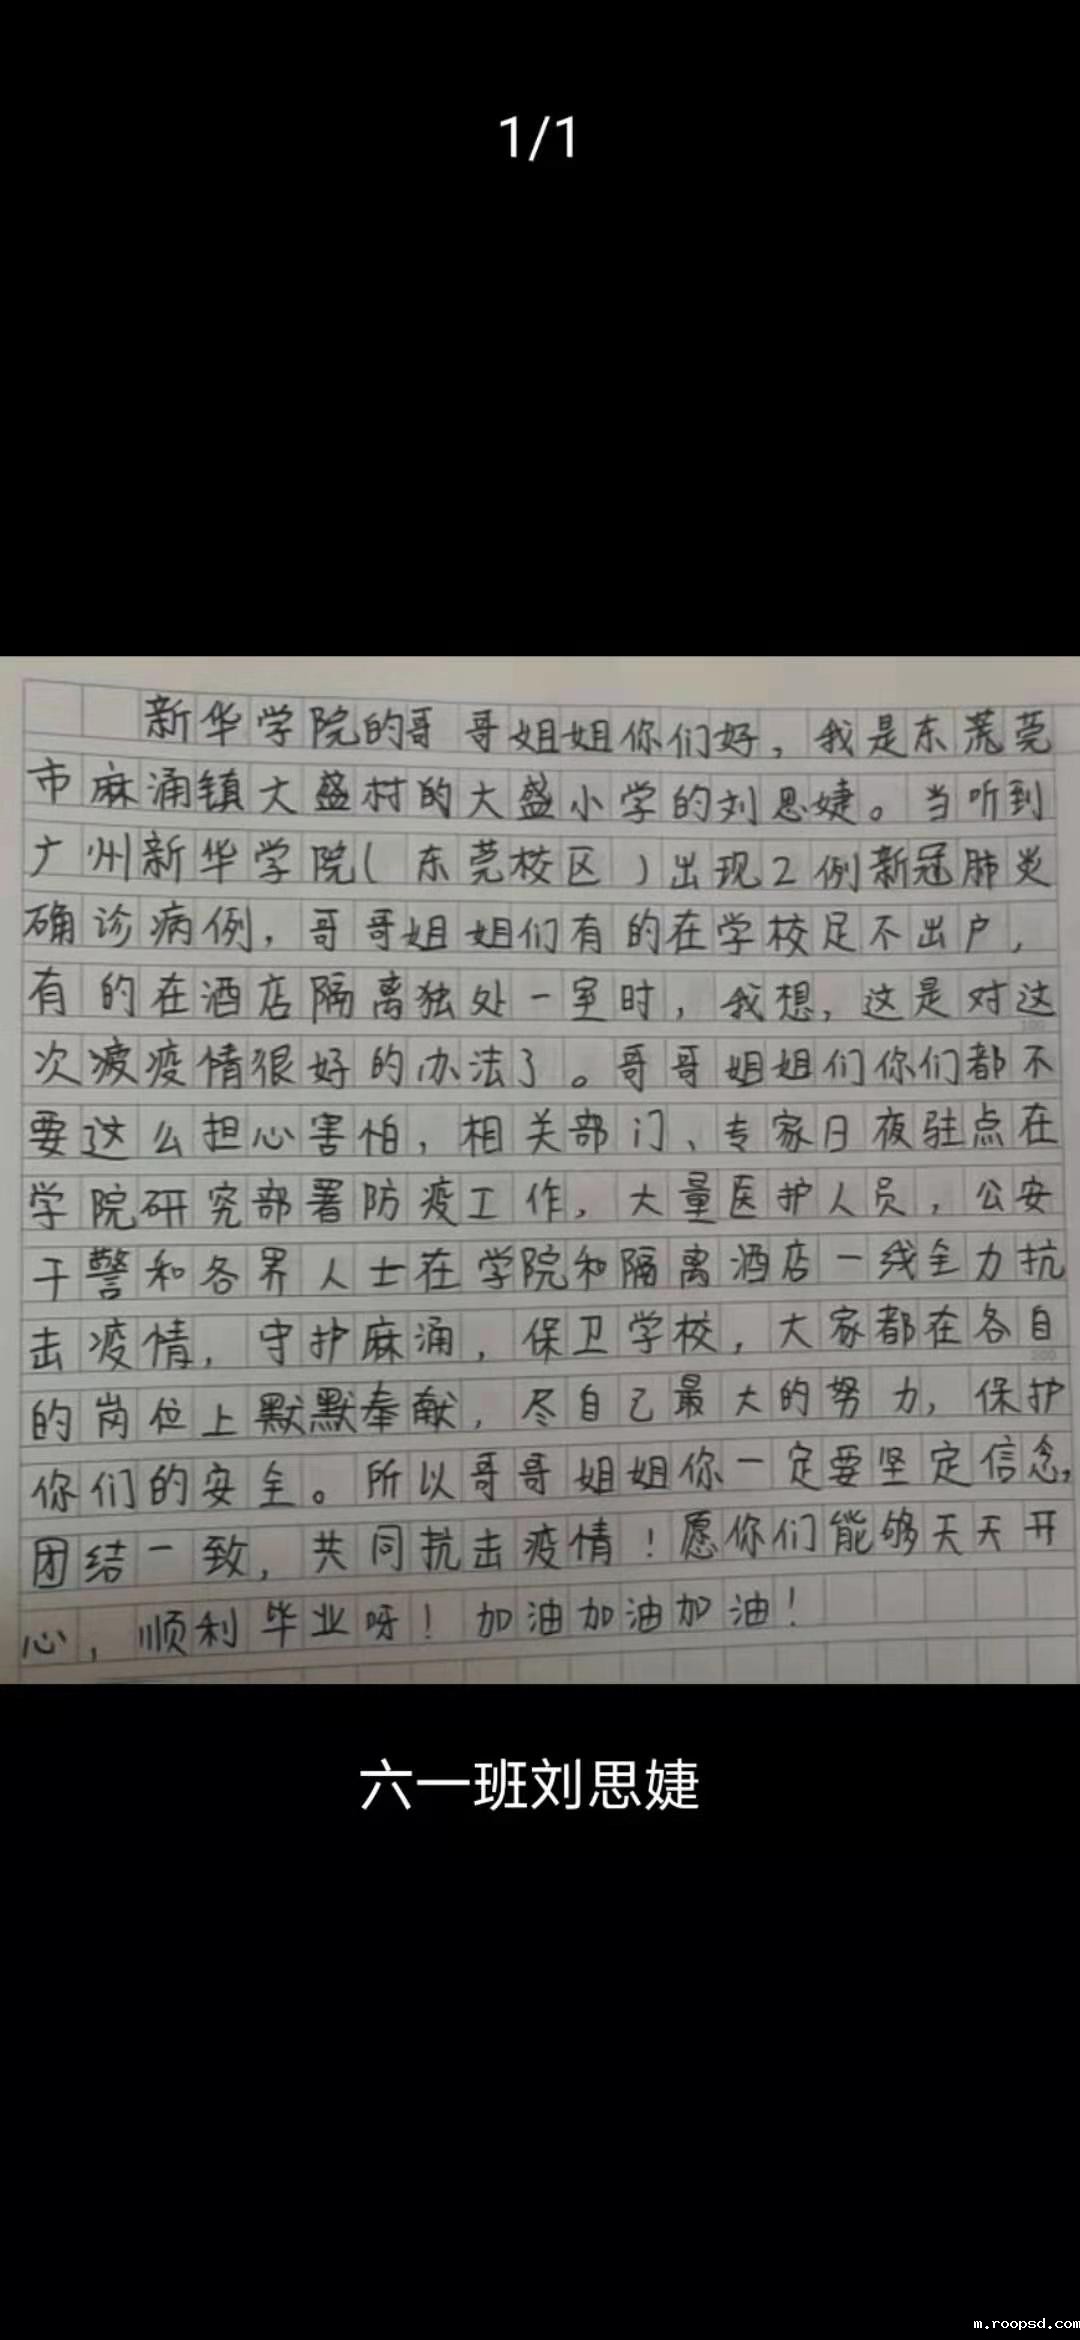 1/1
新华学院的哥哥姐姐你们好，我是东荒莞
市麻涌镇大盛村的大盛小学的刘思婕。当听到
广州新华学院(东莞校区)出现2例新冠肺炎
确诊病例，哥哥姐姐们有的在学校足不出户，
有的在酒店隔离独处一室时，我想，这是对这
次疲疫情很好的办法了。哥哥姐姐们你们都不
要这么担心害怕，相关部门、专家日夜驻点在
学院研究部署防疫工作，大量医护人员，公安
干警和各界人士在学院和隔离酒店一线全力抗
击疫情，守护麻涌，保卫学校，大家都在各自
的岗位上默默奉献，尽自己最大的努力，保护
你们的安全。所以哥哥姐姐你一定要坚定信念，
团结一致，共同抗击疫情！愿你们能够天天开
心，顺利毕业呀！加油加油加油！
六一班刘思婕
m.roopsd.com